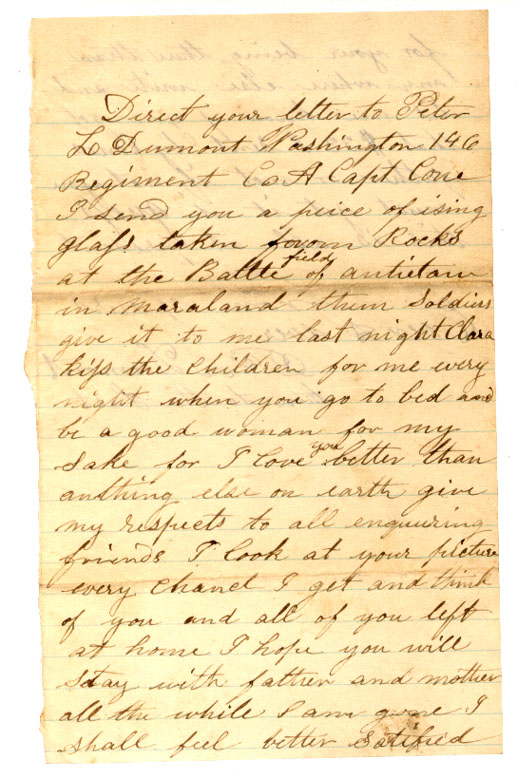 Direct your letter to Peter
L Dumont Washington 146
Regiment Co A Capt Cone
I send you a peice of ising
glass taken froom Rocks
at the Battle field of antietam
in maraland them Soldiers
give it to me last night Clara
kiss the children for me every
night when you go to bed and
be a good woman for my
sake for I love you better than
anthing else on earth give
my respects to all enqueiring
friends I look at your picture
every chancl I get and think
of you and all of you left
at home I hope you will
stay with father and mother
all the while I am gone I
shall feel better satified